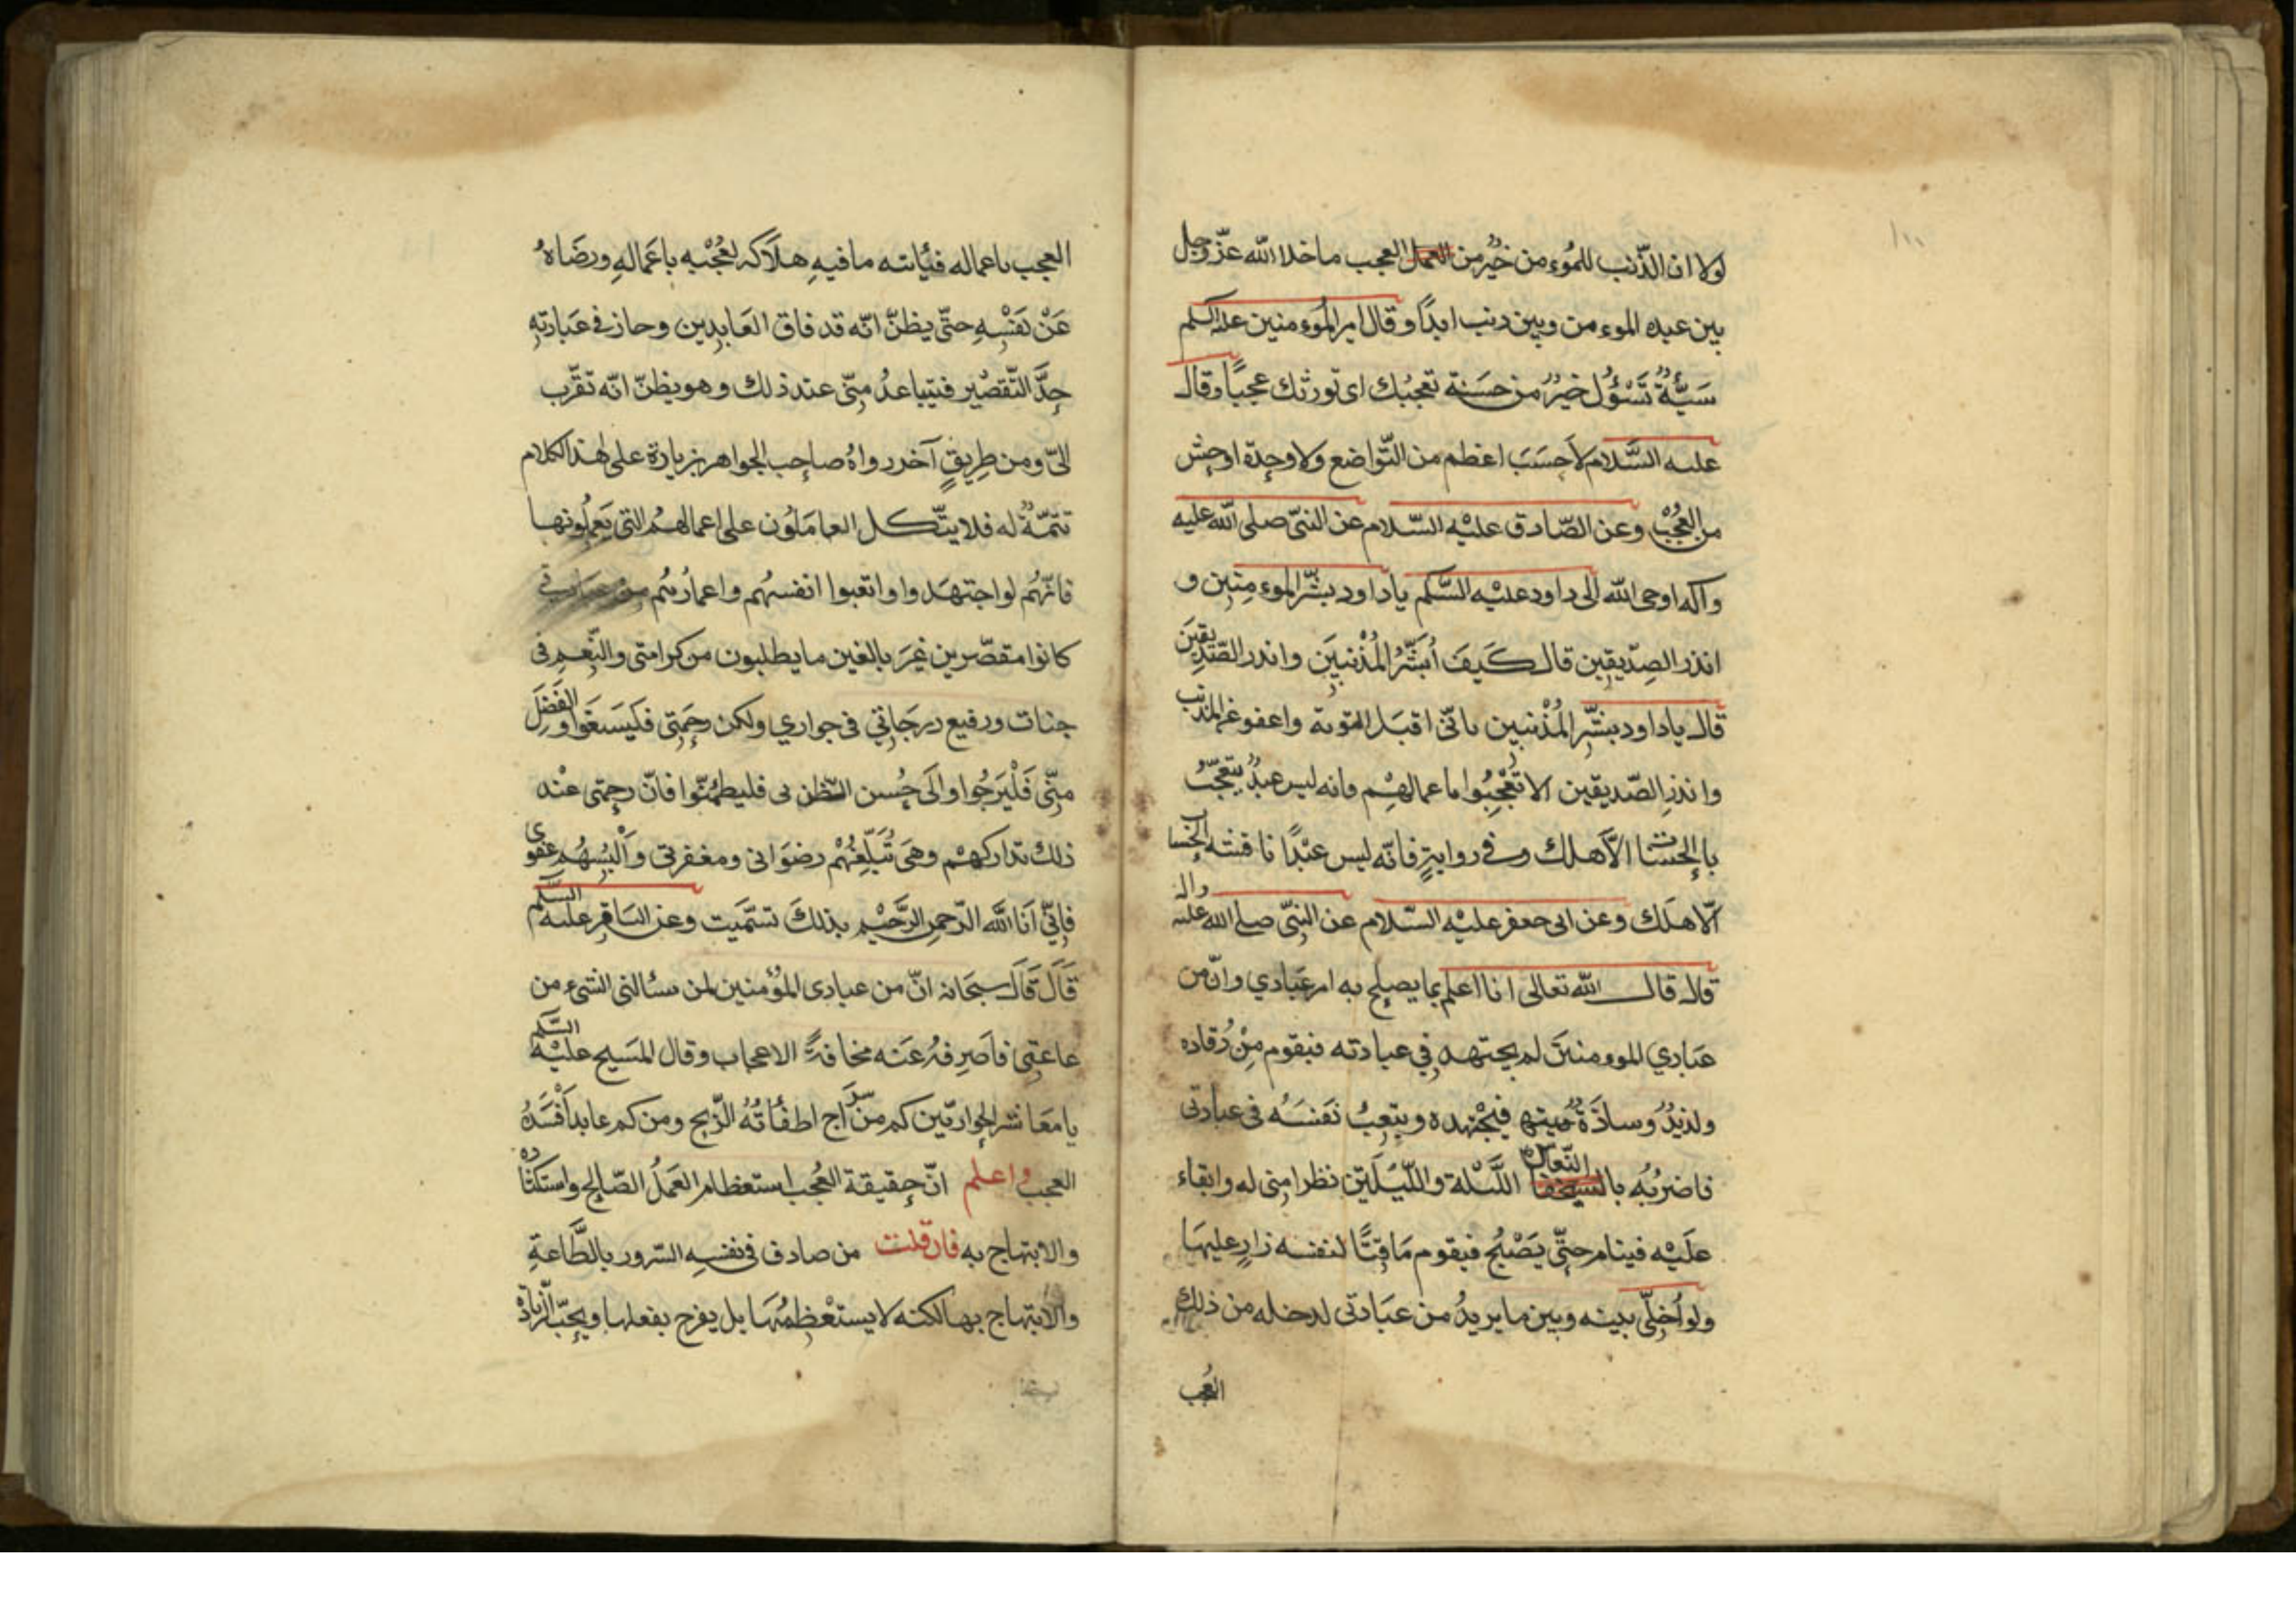 ١٠٠
لولا ان الذّنب للمُوءمن خَيرٌ من العمل العجب ما خلا الله عزّوجل
بين عبده الموءمن وبين ذنب ابدًا وقال امير المُوءمنين علیه السلم
سَيّئَةٌ تَسُؤُك خيرٌ من حَسَنة تعجبُك اى تورثك عجبًا وقال
عليه السَّلام لاَحَسَبَ اعظم من التّواضع ولا وحدة اوحش
من العُجْب وعن الصّادق عليْه السّلام عن النبىّ صلى الله عليه
وآله اوحى الله الى داود عليْه السَّلم يا داود بشّر الموءمنين و
انذر الصِدّيقين قال كَيفَ أُبشّرُ المُذْنبيَن وانذر الصّدّيقينَ
قال يا داود بشّر المُذْنبين بانّى اقبَل التوبة واعفو عن المذنب
وانذرِ الصّديقين الا تُعْجِبُوا باعمالهِم فانه ليس عبدٌ يتعجّبُ
بالحَسَنات الاّ هلك وفى روايةٍ فانّه ليس عبْدًا ناقشته الحساب
الّا هلَك وعن ابى جعفر عليْه السّلام عن النبىّ صلى الله عليه واله
قال قال الله تعالى انا اعلم بما يصلح به امر عبَادي وانّ من
عبَادي الموءمنينَ لمن يجتهد في عبادته فيقوم مِنْ رُقاده
ولذيذُ وسادَةٌ فيجْتهد ويتعِبُ نَفسَهُ فى عبادتى
فاضربُه بالنّعاس اللَّيْلة واللّيْلَتين نظرا منى له وابقاء
علَيْه فينام حتّى يَصْبحُ فيقوم مَاقتًا لنفسه زارٍ عليهَا
ولو أُخلّى بينه وبين ما يريدُ من عبَادتى لدخله من ذلك
العُجب
العجب باعماله فيأتيه ما فيهِ هلَاكه لعُجْبه باعمَالهِ ورضَاهُ
عَنْ نَفْسِهِ حتّى يظنّ انّه قد فاق العَابدِين وحاز فى عبَادتهِ
حدَّ التّقصْير فيتباعدُ منّى عند ذلك وهو يظنّ انّه تقرّب
الىّ ومن طريقٍ آخر رواهُ صاحب الجواهر بزيادة على هذا الكلام
تتمّةٌ له فلا يتّكل العاملُون على اعمالهمُ التى يَعملُونها
فانّهُم لو اجتهَدوا واتعبوا انفسهُم واعمارُهُم فى عبادتى
كانوا مقصّرين غيرَ بالغين ما يطلبون من كرامتى والنّعيم فى
جنات ورفيع درجَاتي فى جواري ولكن رحمَتى فليَسغَوا والفَضْلَ
منِّى فَلْيَرجُوا والَى حُسن الظن بى فليطمئنّوا فانّ رحمتى عنْد
ذلك تداركهْم وهىَ تُبَلّغهُم رضوَانى ومغفرتى وأُلْبسُهُم عفوى
فإنّي أنَا الله الرّحمن الرَّحيْم بذلكَ تسمّيَت وعن الباقر عليه السَّلم
قَالَ قَالَ سبحَانه انّ من عبادى المؤمنين لمن يسألنى الشىء من
طاعتى فاَصرِفهُ عَنه مخافةً الاعجاب وقال المسَيح عليْه السَّلم
يا معَاشر الحواريّين كم من سراج اطفأتْهُ الرّيح ومن كم عابد افْسَدَهُ
العجب واعلم انّ حقيقة العُجب استعظام العَمَل الصّالح واستكثاره
والابتهاج به فان قلت من صادف فى نفسِه السّرور بالطَّاعةِ
والابتهاج بها لكنه لا يستعْظِمُهَا بل يفرح بفعلها ويحبّ الزيادة